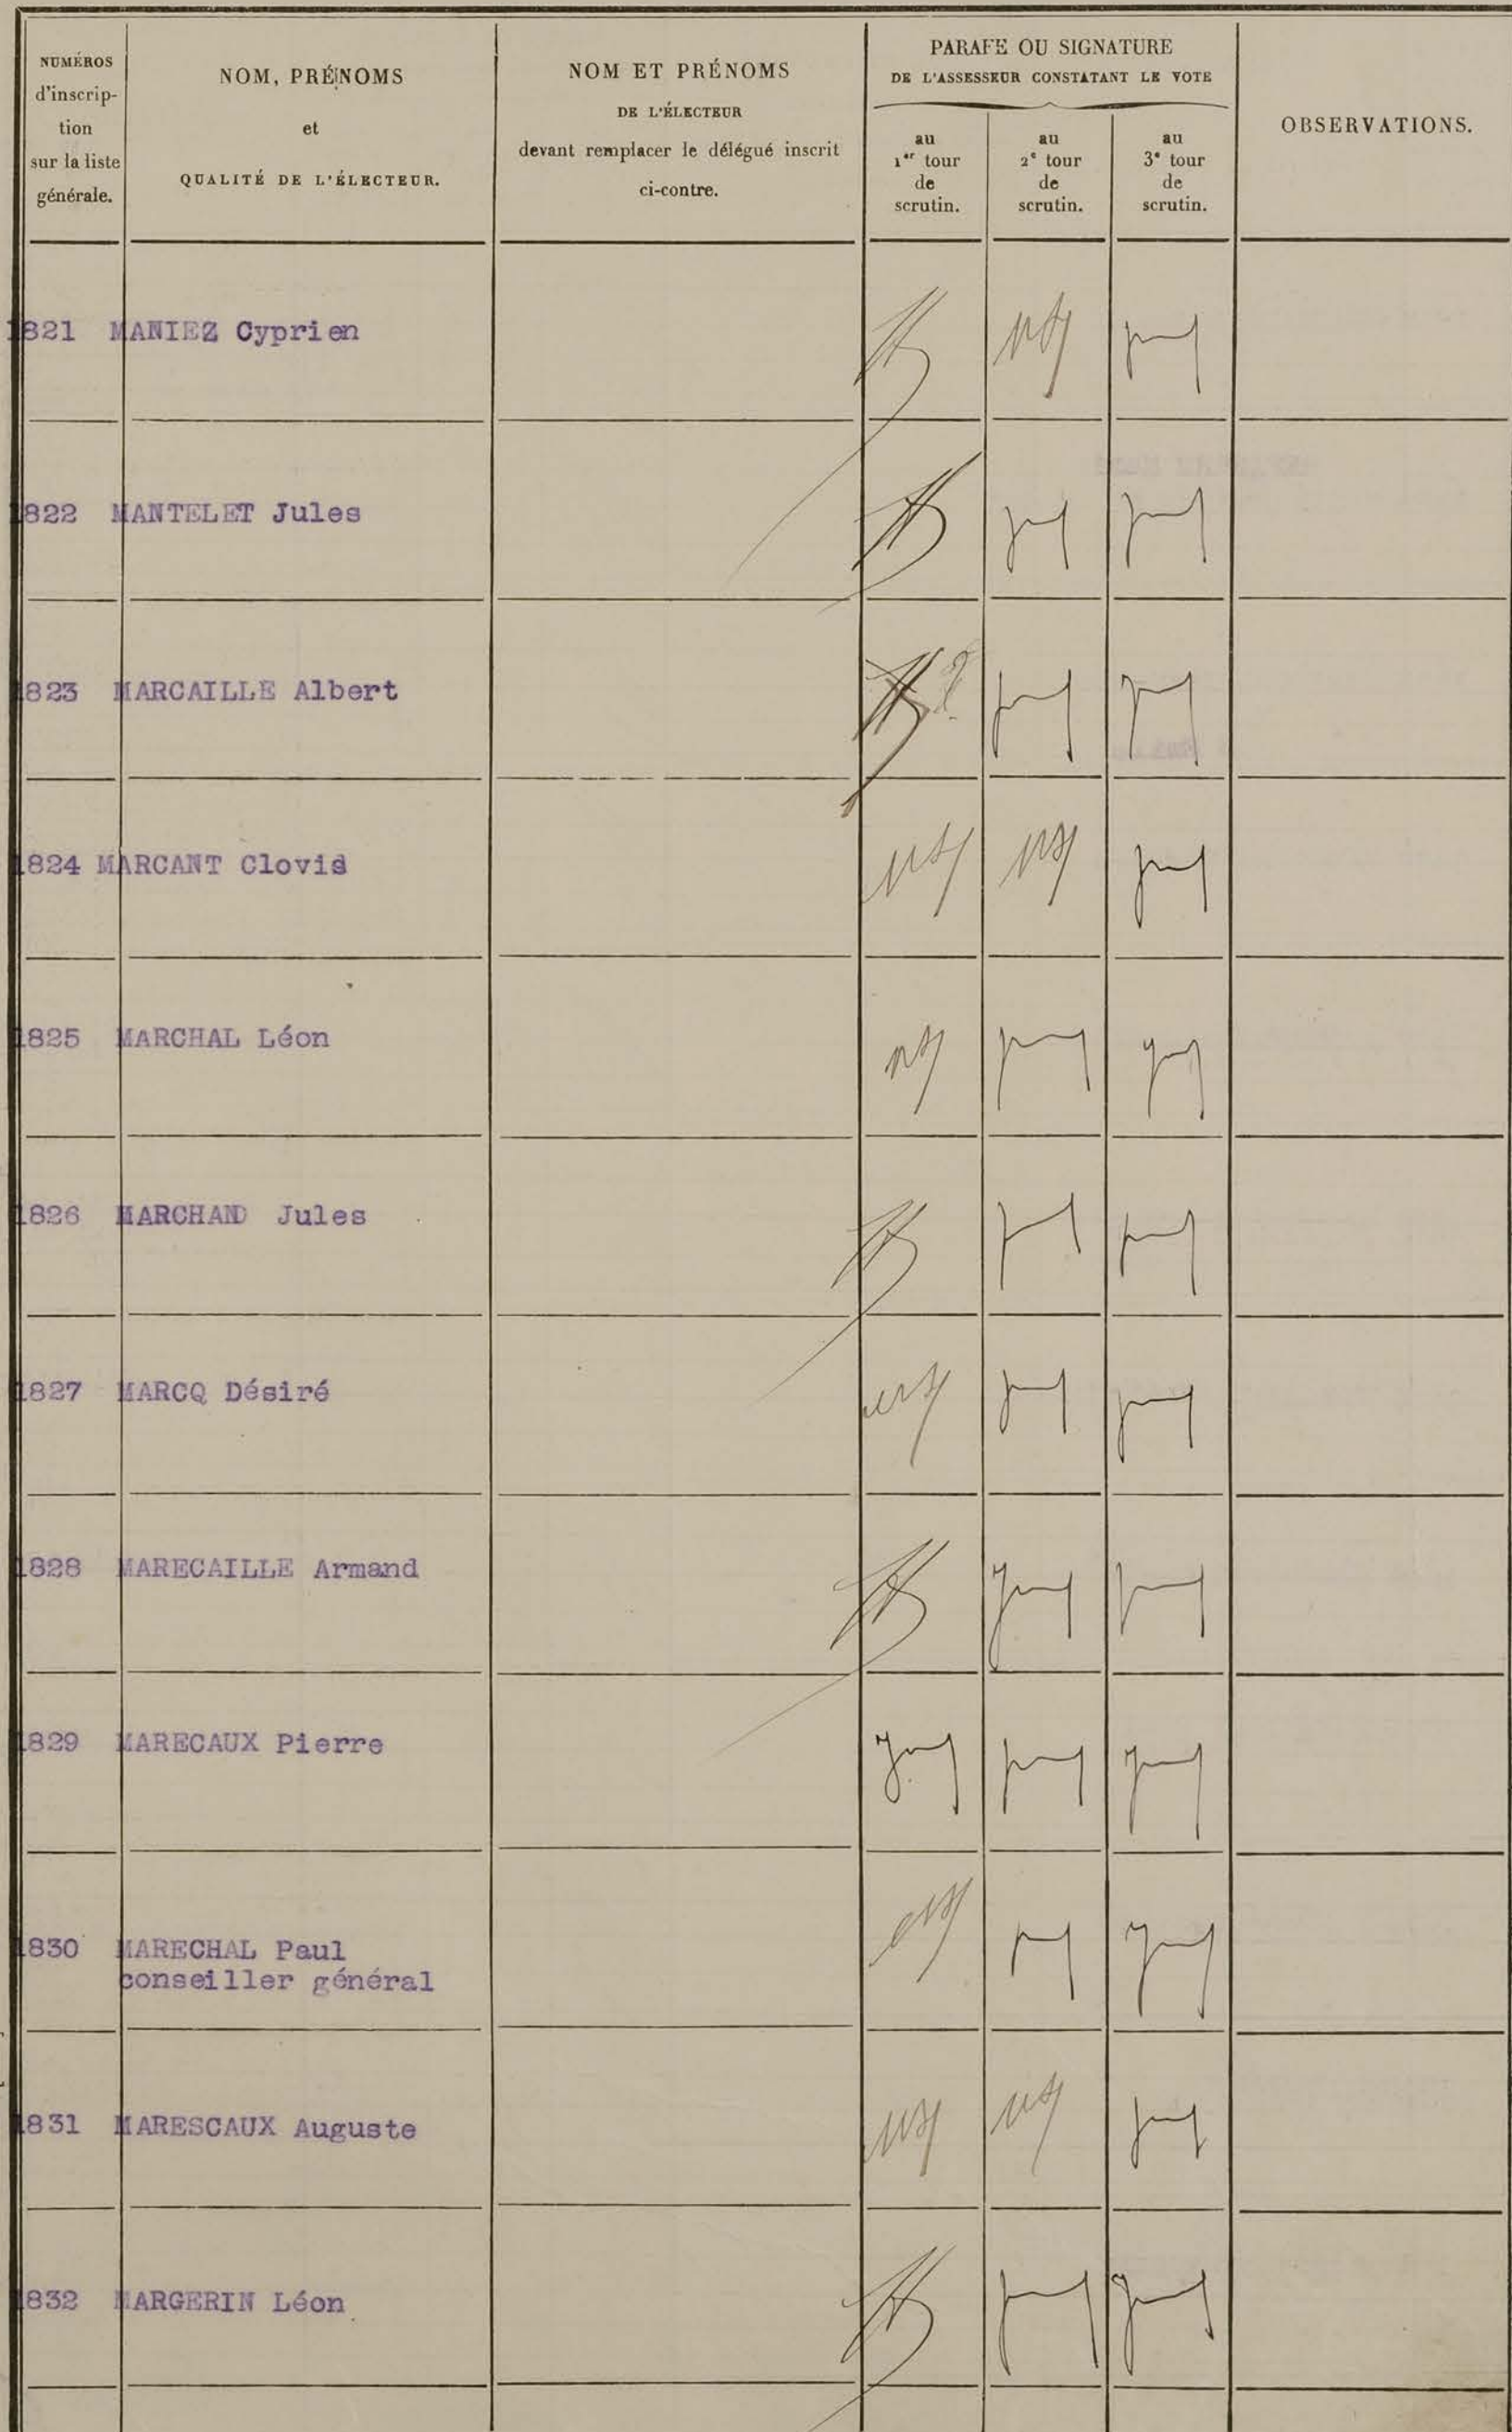 NUMÉROS
d'inscrip-
tion
sur la liste
générale.
NOM, PRÉNOMS
et
QUALITÉ DE L'ÉLECTEUR.
NOM ET PRÉNOMS
DE L'ÉLECTEUR
devant remplacer le délégué inscrit
ci-contre.
PARAFE OU SIGNATURE
DE L'ASSESSEUR CONSTATANT LE VOTE
au
1er tour
de
scrutin.
au
2e tour
de
scrutin.
au
3e tour
de
scrutin.
OBSERVATIONS.
1821 MANIEZ Cyprien
1822 MANTELET Jules
1823 MARCAILLE Albert
1824 MARCANT Clovis
1825 MARCHAL Léon
1826 MARCHAND Jules
1827 MARCQ Désiré
1828 MARECAILLE Armand
1829 MARECAUX Pierre
1830 MARECHAL Paul
conseiller général
1831 MARESCAUX Auguste
1832 MARGERIN Léon